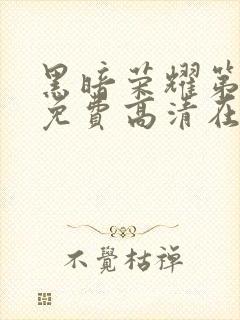 黑暗荣耀第
免费高清在
不覺枯禅